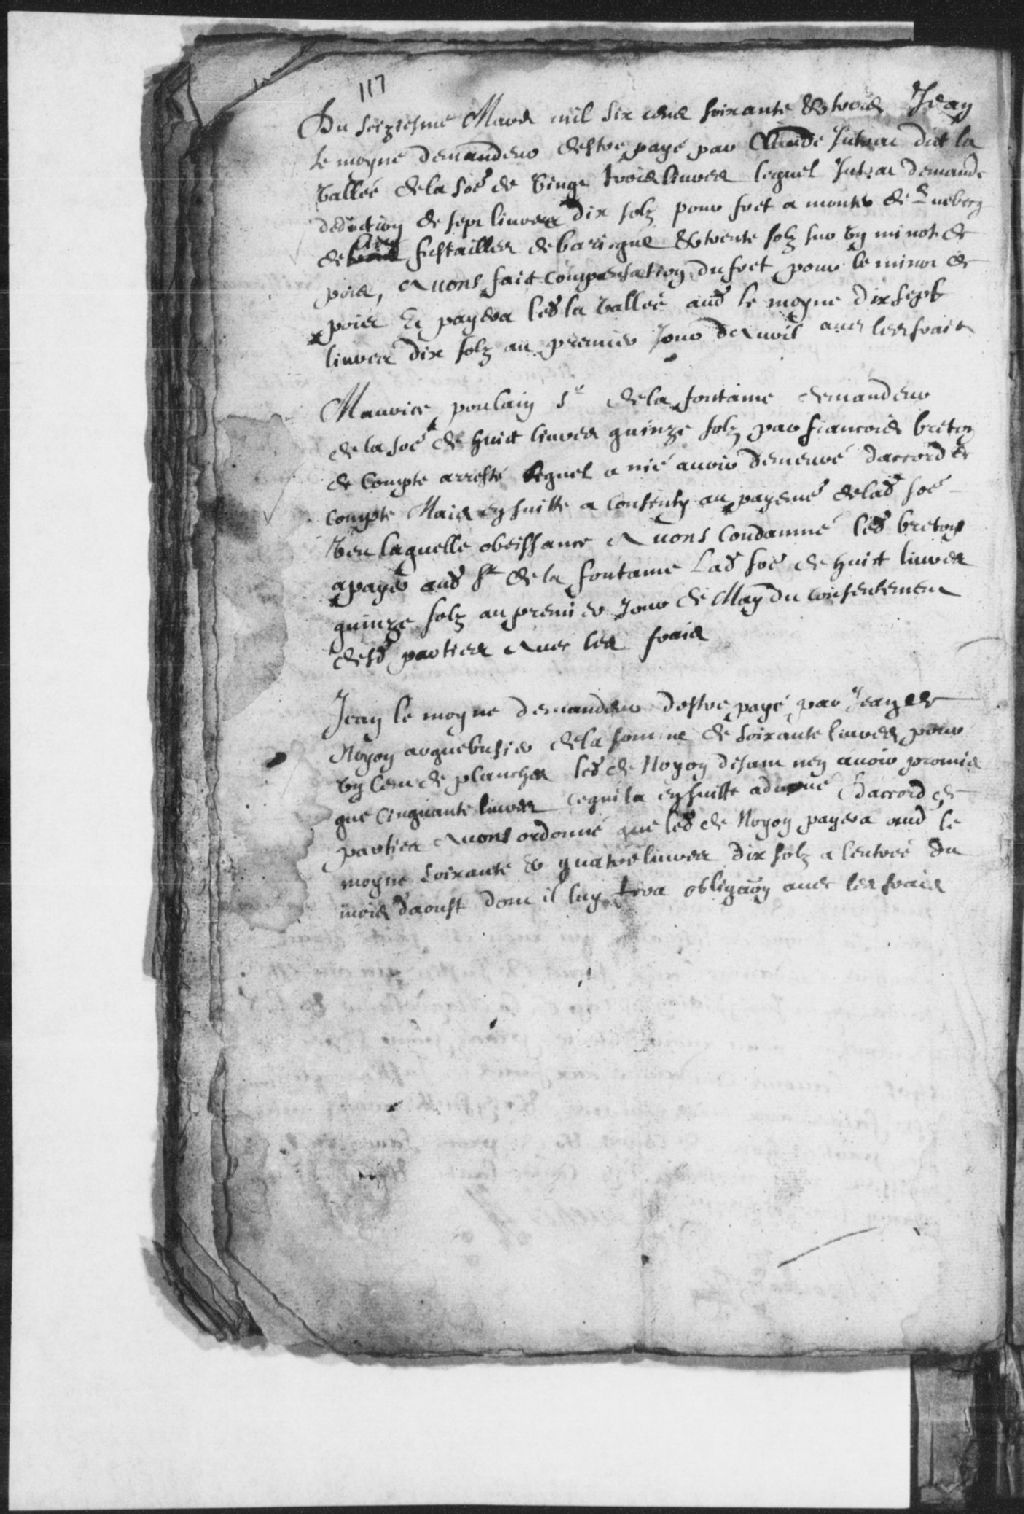 117
Du seiziesme Mars mil six cens soixante & trois Jean
le moyne demandeur destre payé par Claude Jutrac dit la
Vallée de la soe de Vingt trois livres lequel Jutrac demande
deduction de sept livres dix solz pour fret a monter de
de fustailles de & trente solz sur Un minot de
pois, Avons fait compensation du fret pour le minot de
pois Et payera led la Vallée aud le moyne dix sept
livres dix solz au premier Jour davril avec les frais
Maurice poulain Sr de la fontaine demandeur
de la soe de huit livres quinze solz par francois breton
de Compte arresté lequel a nié avoir demeuré daccord de
compte Mais ensuitte a consenty au payemt de lad soe
Veu laquelle obeissance Avons Condamné led breton
a payer aud Sr de la fontaine Lad soe de huit livres
quinze solz au premier Jour de May du consentement
desd parties Avec les frais
Jean le moyne demandeur destre payé par Jean de
Noyon arquebusier de la somme de soixante livres pour
Un Cent de planches led de Noyon disant nen avoir promis
que Cinquante livres ensuitte daccord de
parties Avons ordonné que led de Noyon payera aud le
moyne soixante & quatre livres dix solz a lentrée du
mois daoust dont il luy fera obligaon avec les frais